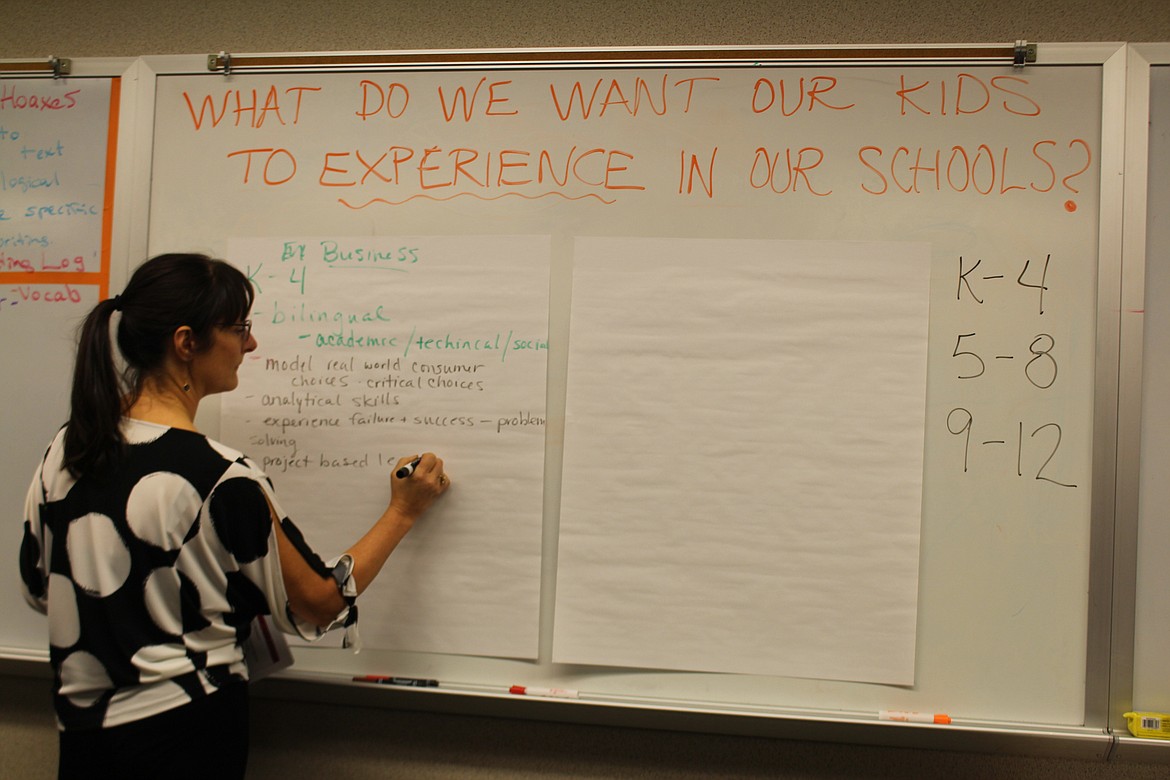 Hoaxes
to
text
logical
specific
Log
-Vocab
WHAT DO WE WANT OUR KIDS
TO EXPERIENCE IN OUR SCHOOLS?
Business
K-4
- bilingual
- academic/techincal/social
- model real world consumer
choices · critical choices
- analytical skills
- experience failure + success - problem
solving
project based le
K-4
5-8
9-12